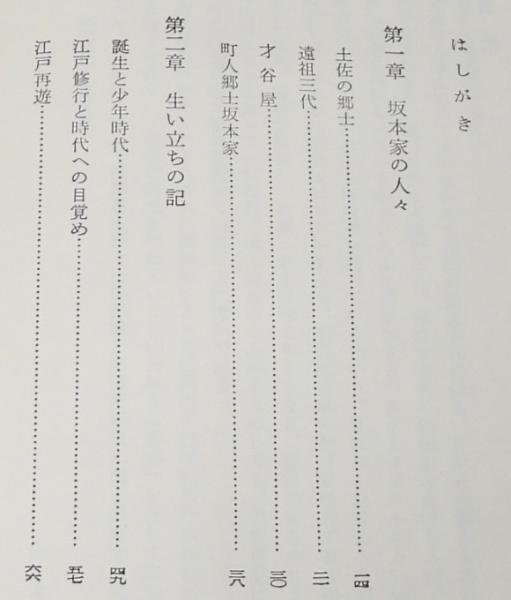 はしがき
第一章 坂本家の人々
土佐の郷士……一四
遠祖三代……二一
才谷屋……三〇
町人郷士坂本家……三八
第二章 生い立ちの記
誕生と少年時代……四九
江戸修行と時代への目覚め……五七
江戸再遊……六六